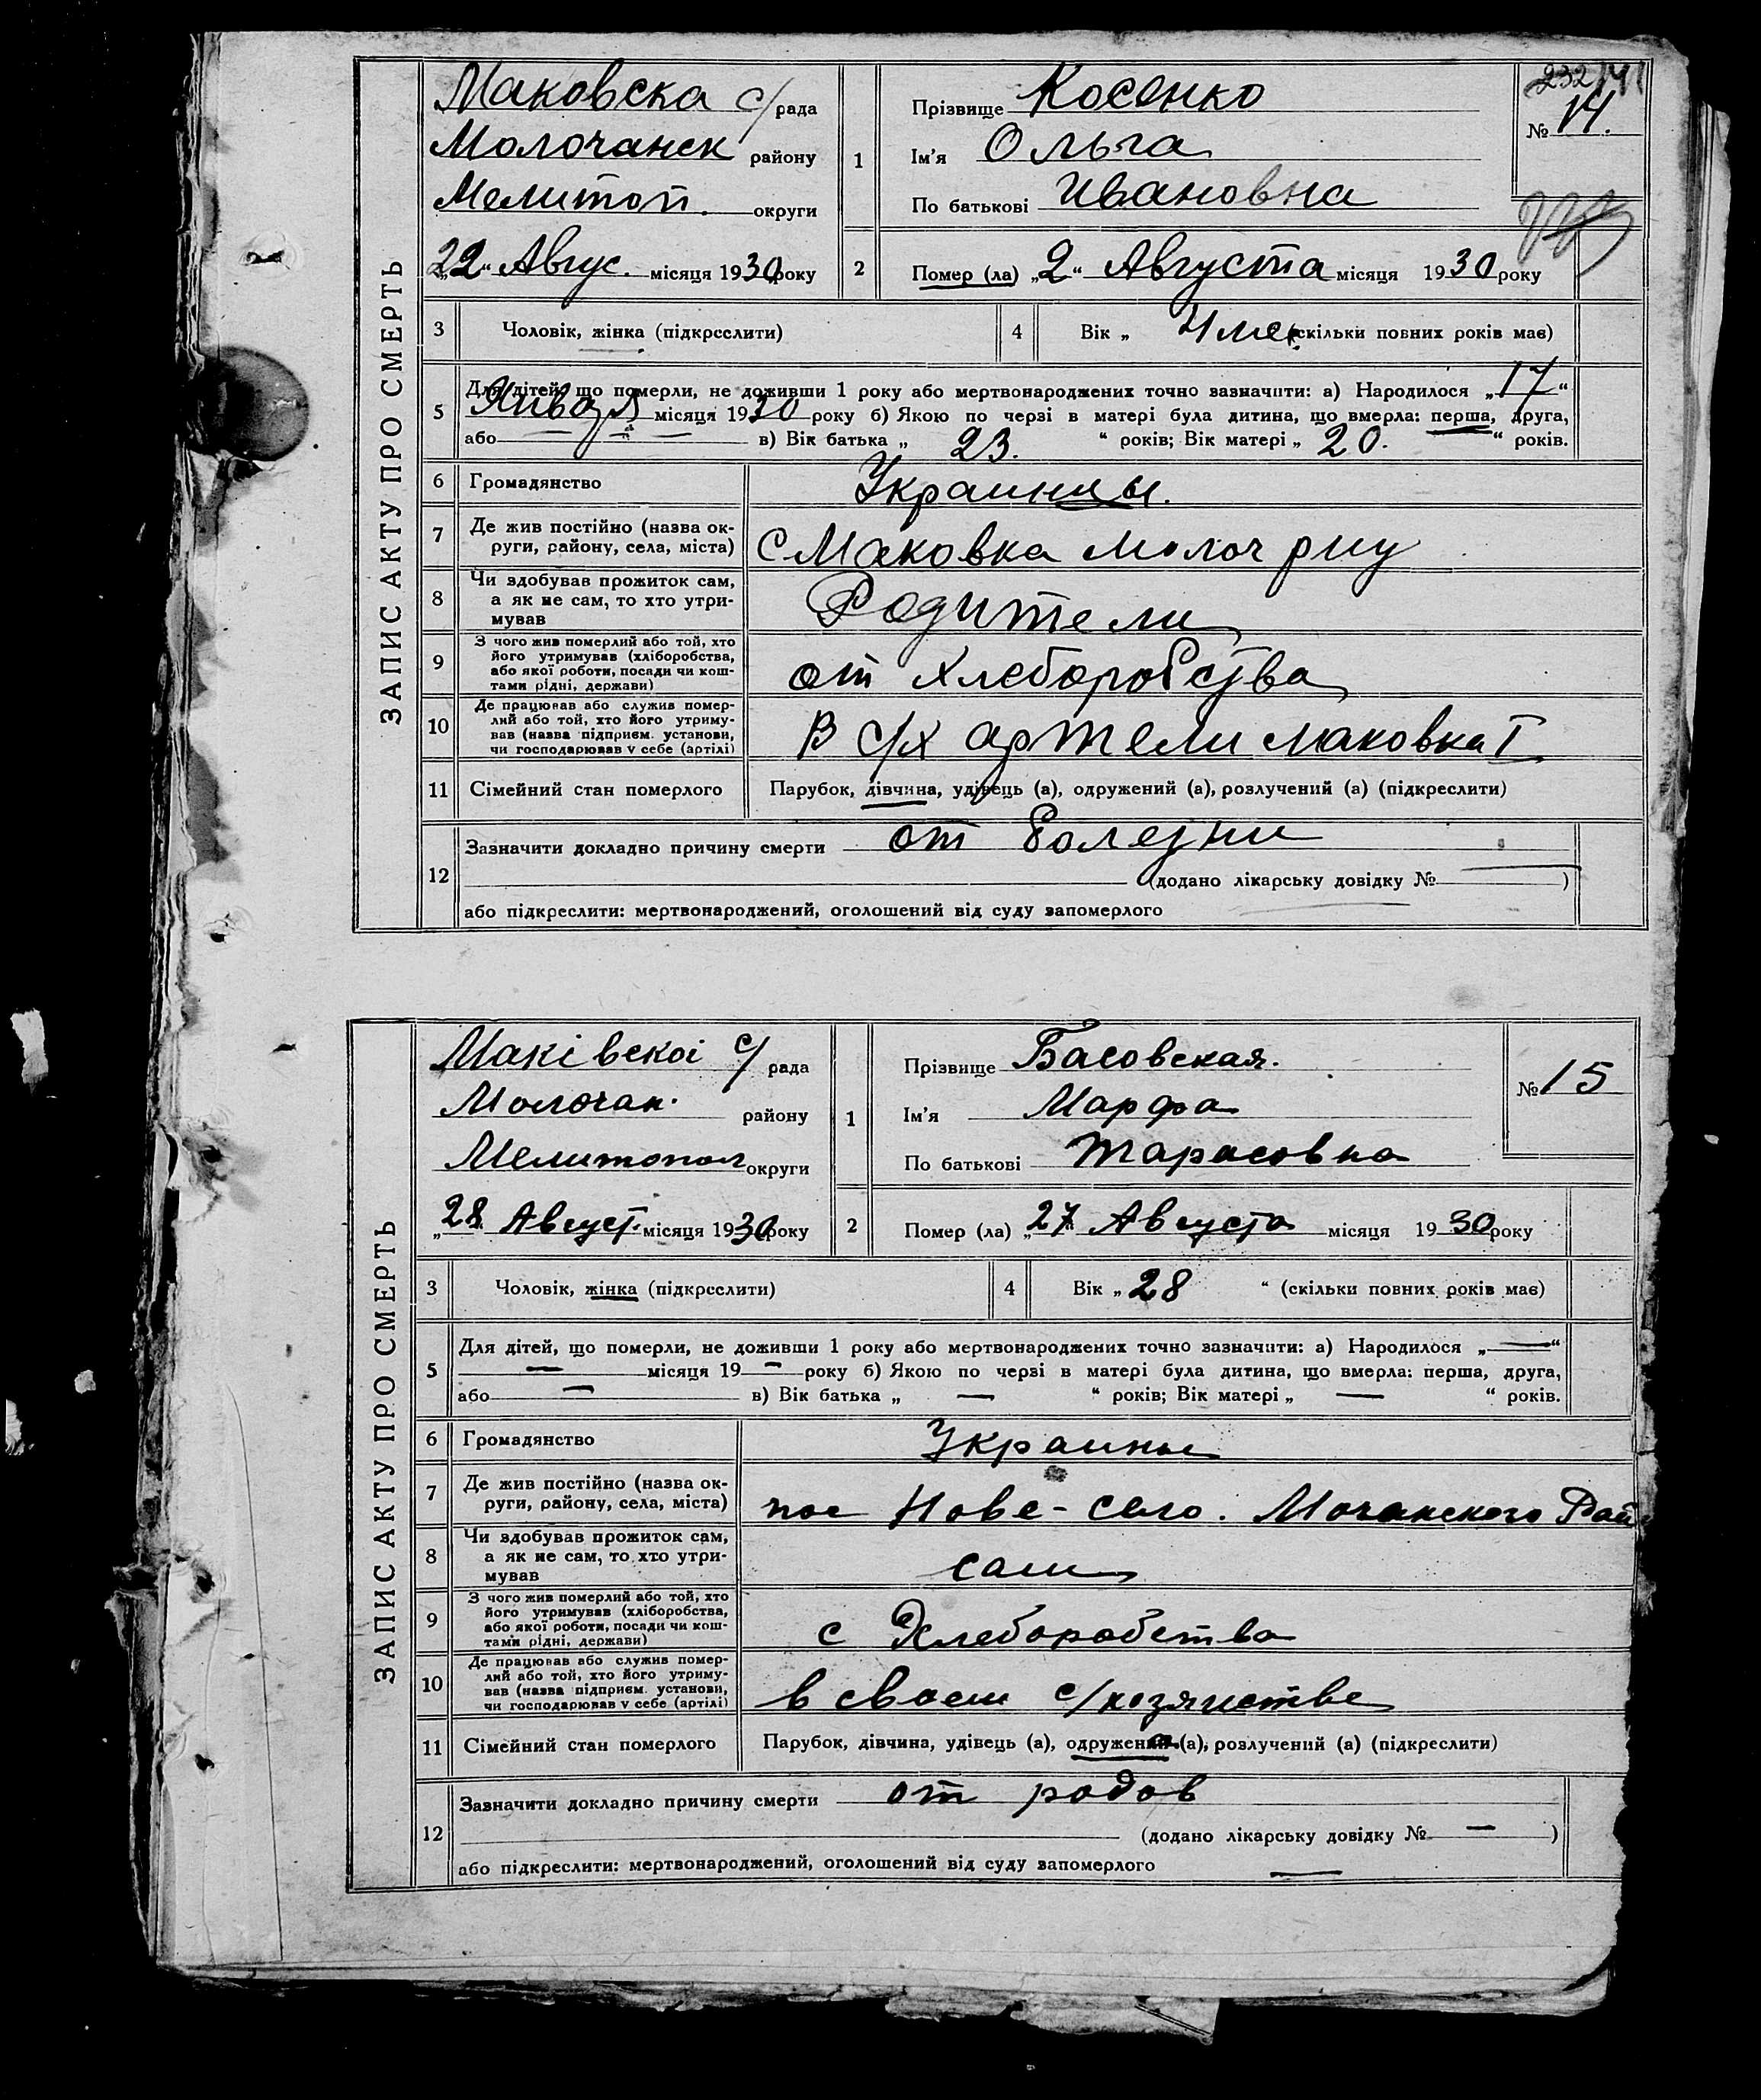 ЗАПИС АКТУ ПРО СМЕРТЬ
Маковска с/рада
Молочанск району
Мелитоп. округи
„22“ Авгус. місяця 1930 року
1
Прізвище Косенко
Ім'я Ольга
По батькові Ивановна
232
№ 14.
2
Помер (ла) „2“ Августа місяця 1930 року
3 Чоловік, жінка (підкреслити)
4 Вік „ (скільки повних років має)
5 Для дітей, що померли, не доживши 1 року або мертвонароджених точно зазначити: а) Народилося „17“
Января місяця 1930 року б) Якою по черзі в матері була дитина, що вмерла: перша, друга,
або — — — в) Вік батька „ 23. “ років; Вік матері „ 20. “ років.
6 Громадянство Украины.
7 Де жив постійно (назва ок-
руги, району, села, міста) с Маковка молоч рну
8 Чи здобував прожиток сам,
а як не сам, то хто утри-
мував Родители
9 З чого жив померлий або той, хто
його утримував (хліборобства,
або якої роботи, посади чи кош-
тами рідні, держави) от Хлеборобства
10 Де працював або служив помер-
лий або той, хто його утриму-
вав (назва підприєм. установи,
чи господарював у себе (артілі) в с/х артели маковка I
11 Сімейний стан померлого Парубок, дівчина, удівець (а), одружений (а), розлучений (а) (підкреслити)
12 Зазначити докладно причину смерти от болезни
(додано лікарську довідку № — )
або підкреслити: мертвонароджений, оголошений від суду запомерлого
ЗАПИС АКТУ ПРО СМЕРТЬ
Маківскоі с/рада
Молочан. району
Мелитопол округи
„28 Август. місяця 1930 року
1
Прізвище Басовская.
Ім'я Марфа
По батькові Тарасовна
№ 15
2
Помер (ла) „27“ Августа місяця 1930 року
3 Чоловік, жінка (підкреслити)
4 Вік „28 “ (скільки повних років має)
5 Для дітей, що померли, не доживши 1 року або мертвонароджених точно зазначити: а) Народилося „—“
— місяця 19 — року б) Якою по черзі в матері була дитина, що вмерла: перша, друга,
або — в) Вік батька „ — “ років; Вік матері „ — “ років.
6 Громадянство Украины
7 Де жив постійно (назва ок-
руги, району, села, міста) пос Нове-село. Мочанского Рай
8 Чи здобував прожиток сам,
а як не сам, то хто утри-
мував сам
9 З чого жив померлий або той, хто
його утримував (хліборобства,
або якої роботи, посади чи кош-
тами рідні, держави) с Хлеборобства
10 Де працював або служив помер-
лий або той, хто його утриму-
вав (назва підприєм. установи,
чи господарював у себе (артілі) в своем с/хозяистве
11 Сімейний стан померлого Парубок, дівчина, удівець (а), одружена (а), розлучений (а) (підкреслити)
12 Зазначити докладно причину смерти от родов
(додано лікарську довідку № — )
або підкреслити: мертвонароджений, оголошений від суду запомерлого —